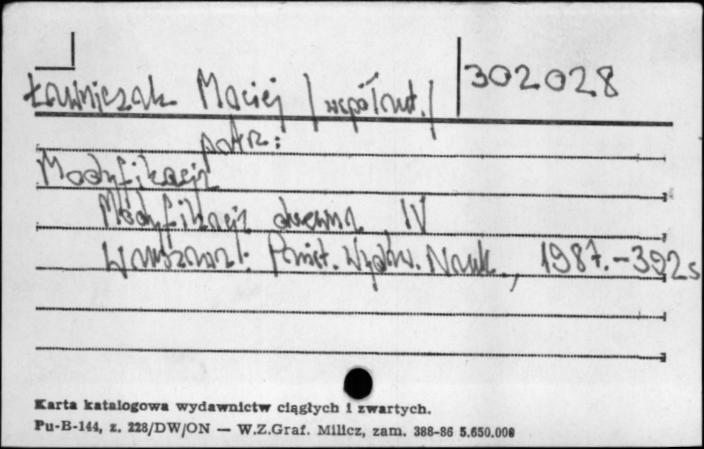 302028
Ławniczak Maciej /współaut./
patrz:
Modyfikacja
Modyfikacja drewna IV
Warszawa: Państ. Wydaw. Nauk., 1987. - 392 s
Karta katalogowa wydawnictw ciągłych i zwartych.
Pu-B-144, z. 228/DW/ON — W.Z.Graf. Milicz, zam. 388-86 5.650.000